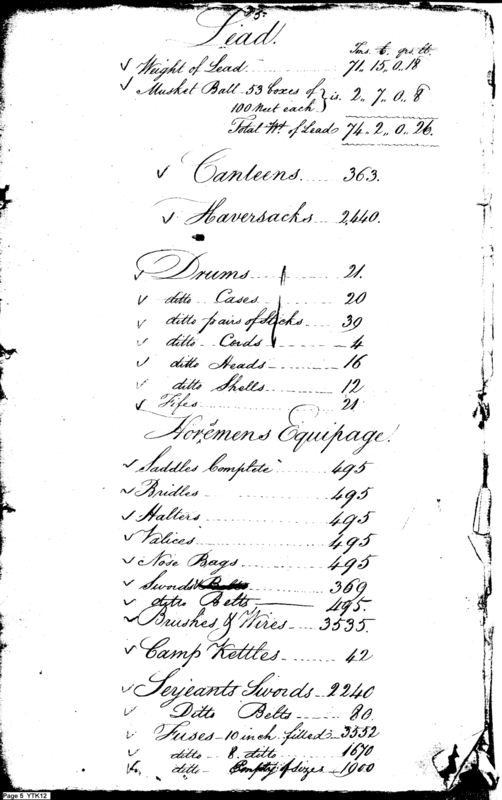 35.
Lead!
Tons. C. qrs. lb.
Weight of Lead 71,, 15,, 0,, 18
Musket Ball. 53 boxes of } is. 2,, 7,, 0,, 8
100 Neet each }
Total Wt of Lead 74,, 2,, 0,, 26.
Canteens 363.
Haversacks 2,440.
Drums 21.
ditto Cases 20
ditto pairs of Sticks 39
ditto Cords 4
ditto Heads 16
ditto Shells 12
Fifes 21
Horsemens Equipage!
Saddles Complete 495
Bridles 495
Halters 495
Valices 495
Nose Bags 495
Swords 369
ditto Belts 495.
Brushes & Wires 3535.
Camp Kettles 42
Serjeants Swords 2240
Ditto Belts 80
Fuses 10 inch filled 3552
ditto 8. ditto 1670
ditto Empty of sizes 1900
Page 5 YTK12